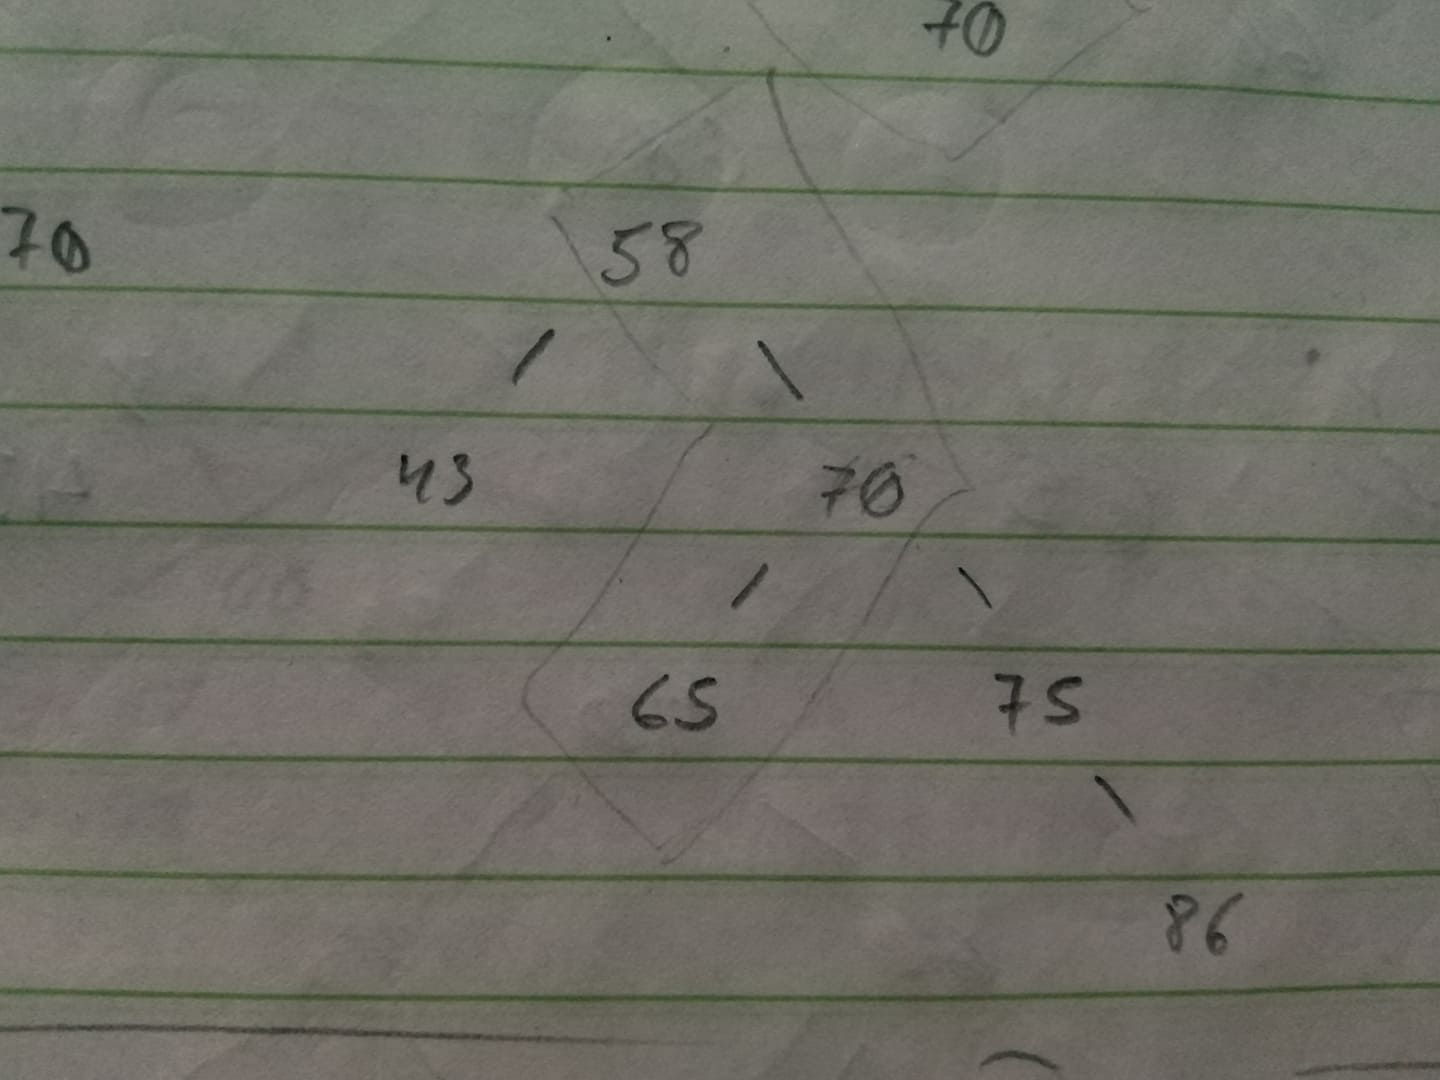 70
70 58
43 70
65 75
86